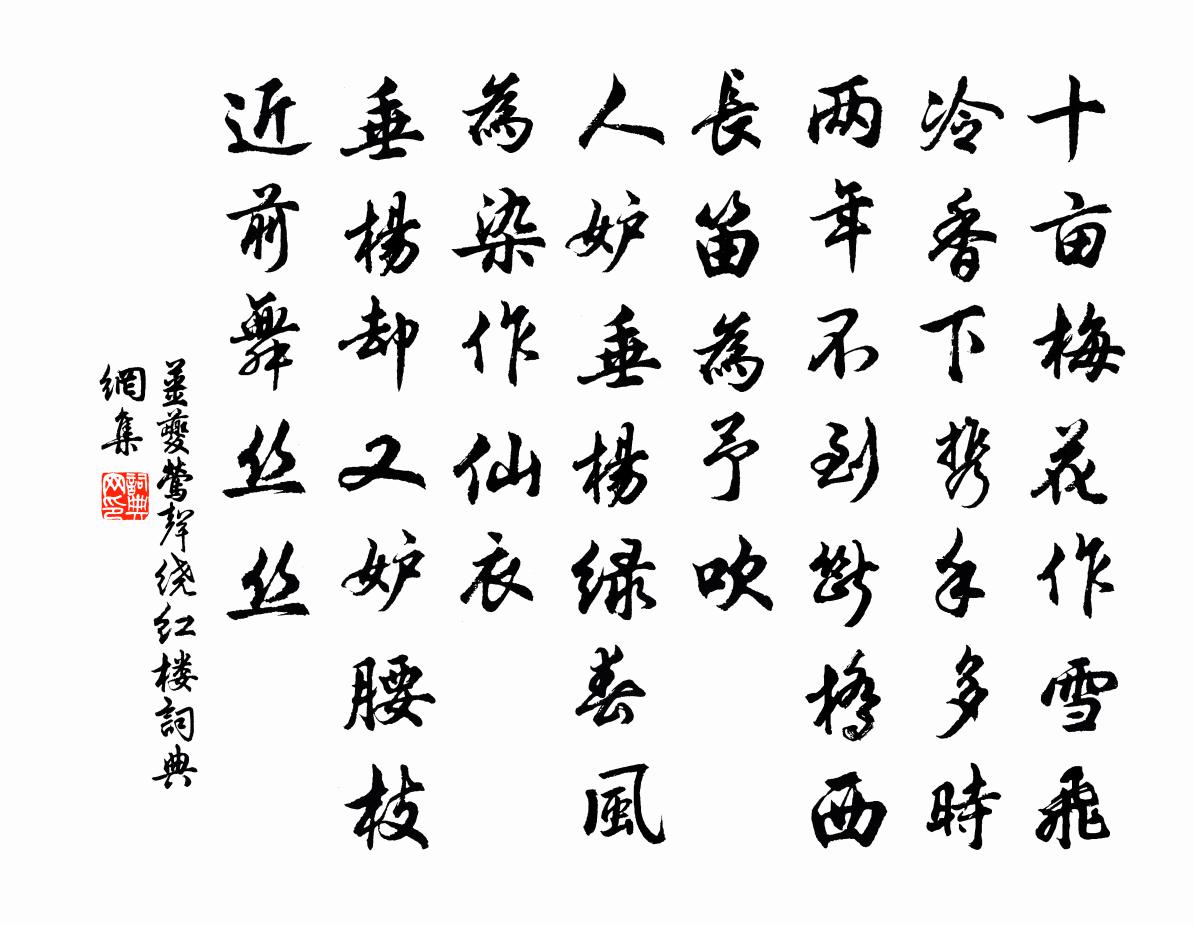 十亩梅花作雪飛
冷香下携手多時
两年不到断橋西
長笛為予吹
人妒垂楊绿春風
為染作仙衣
垂楊却又妒腰枝
近前舞丝丝
姜夔鶯聲绕红楼詞典
網集
詞典
网印